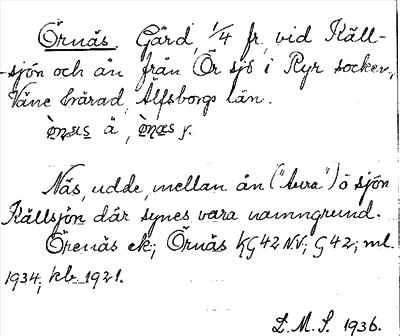 Örnäs. Gård, 1/4 fr, vid Käll-
-sjön och ån från Ör sjö i Ryr socken,
Väne härad, Älfsborgs län.
ä, y.
Näs, udde, mellan ån ("bura") o sjön
Källsjön där synes vara namngrund.
Örenäs ek; Örnäs KG42NV; G42; ml.
1934; kb. 1921.
D.M.S. 1936.